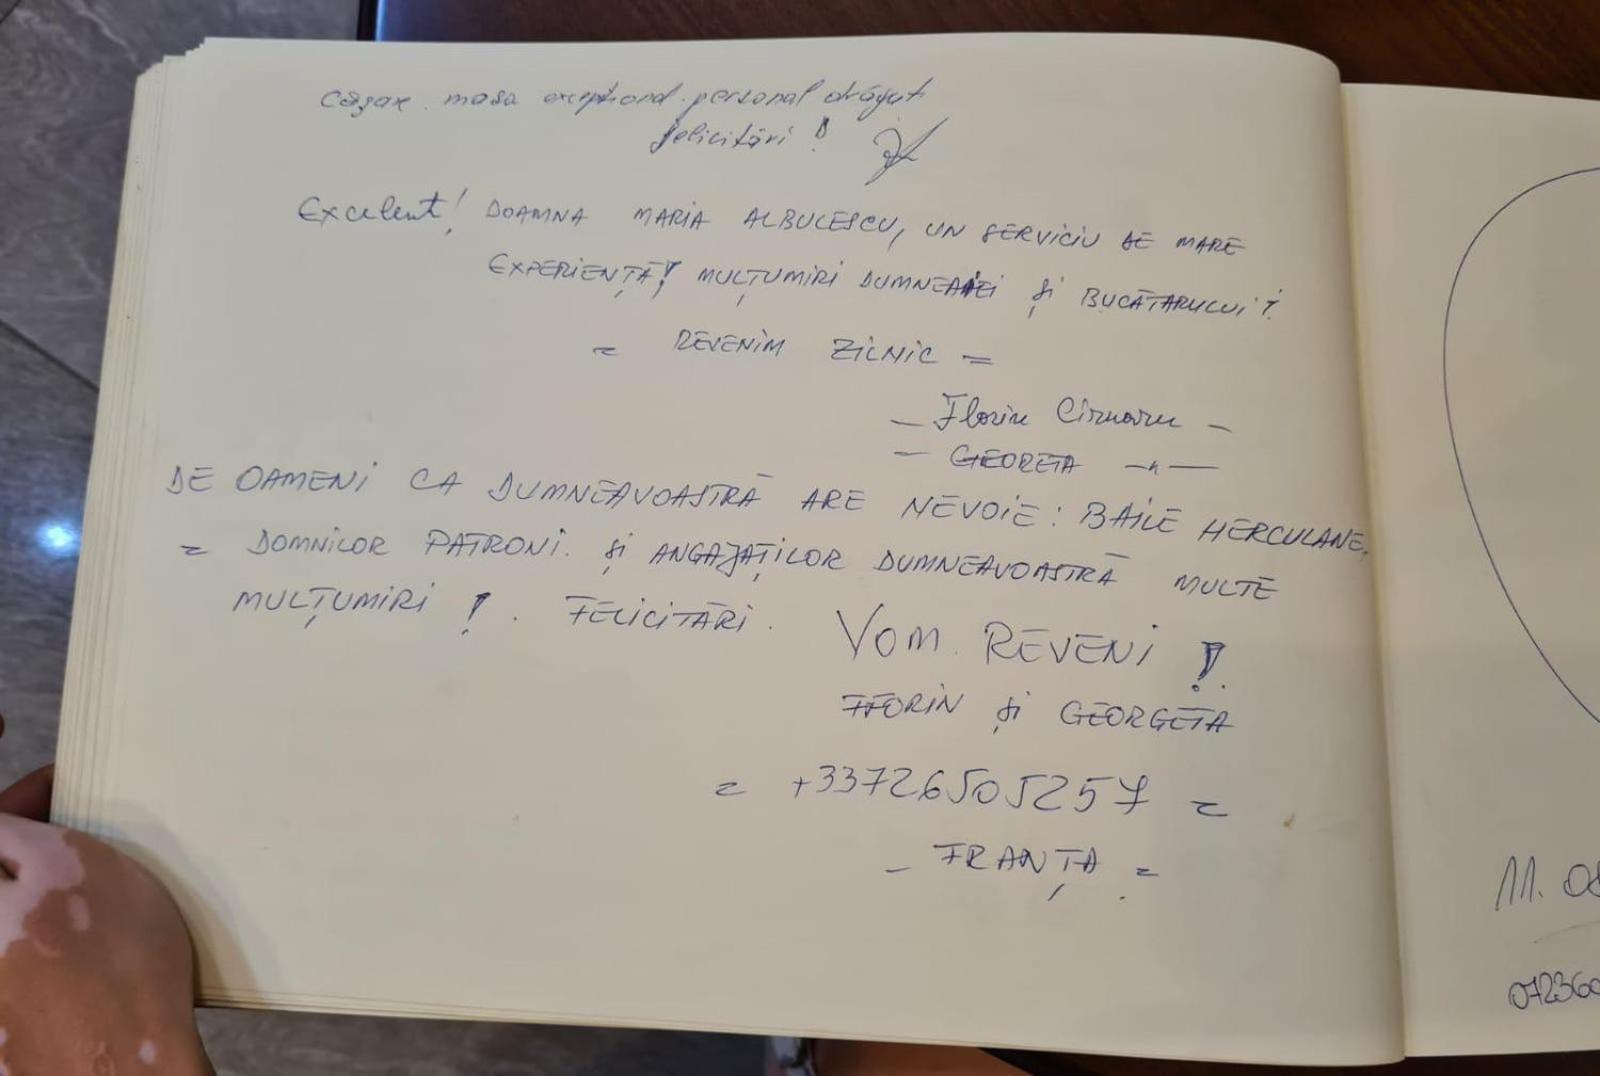 Cazare. masa excepțional. personal drăguț
felicitări!
Excelent! DOAMNA MARIA ALBULESCU, UN SERVICIU DE MARE
EXPERIENȚĂ! MULȚUMIRI DUMNEAEI și BUCĂTARULUI!
= REVENIM ZILNIC =
- Florin -
- GEORETA -"-
DE OAMENI CA DUMNEAVOASTRĂ ARE NEVOIE: BAILE HERCULANE.
= DOMNILOR PATRONI. și ANGAJAȚILOR DUMNEAVOASTRĂ MULTE
MULȚUMIRI!. FELICITĂRI.
VOM. REVENI!.
FLORIN și GEORGETA
= +33726505257 =
- FRANȚA. =
11. 08
072360